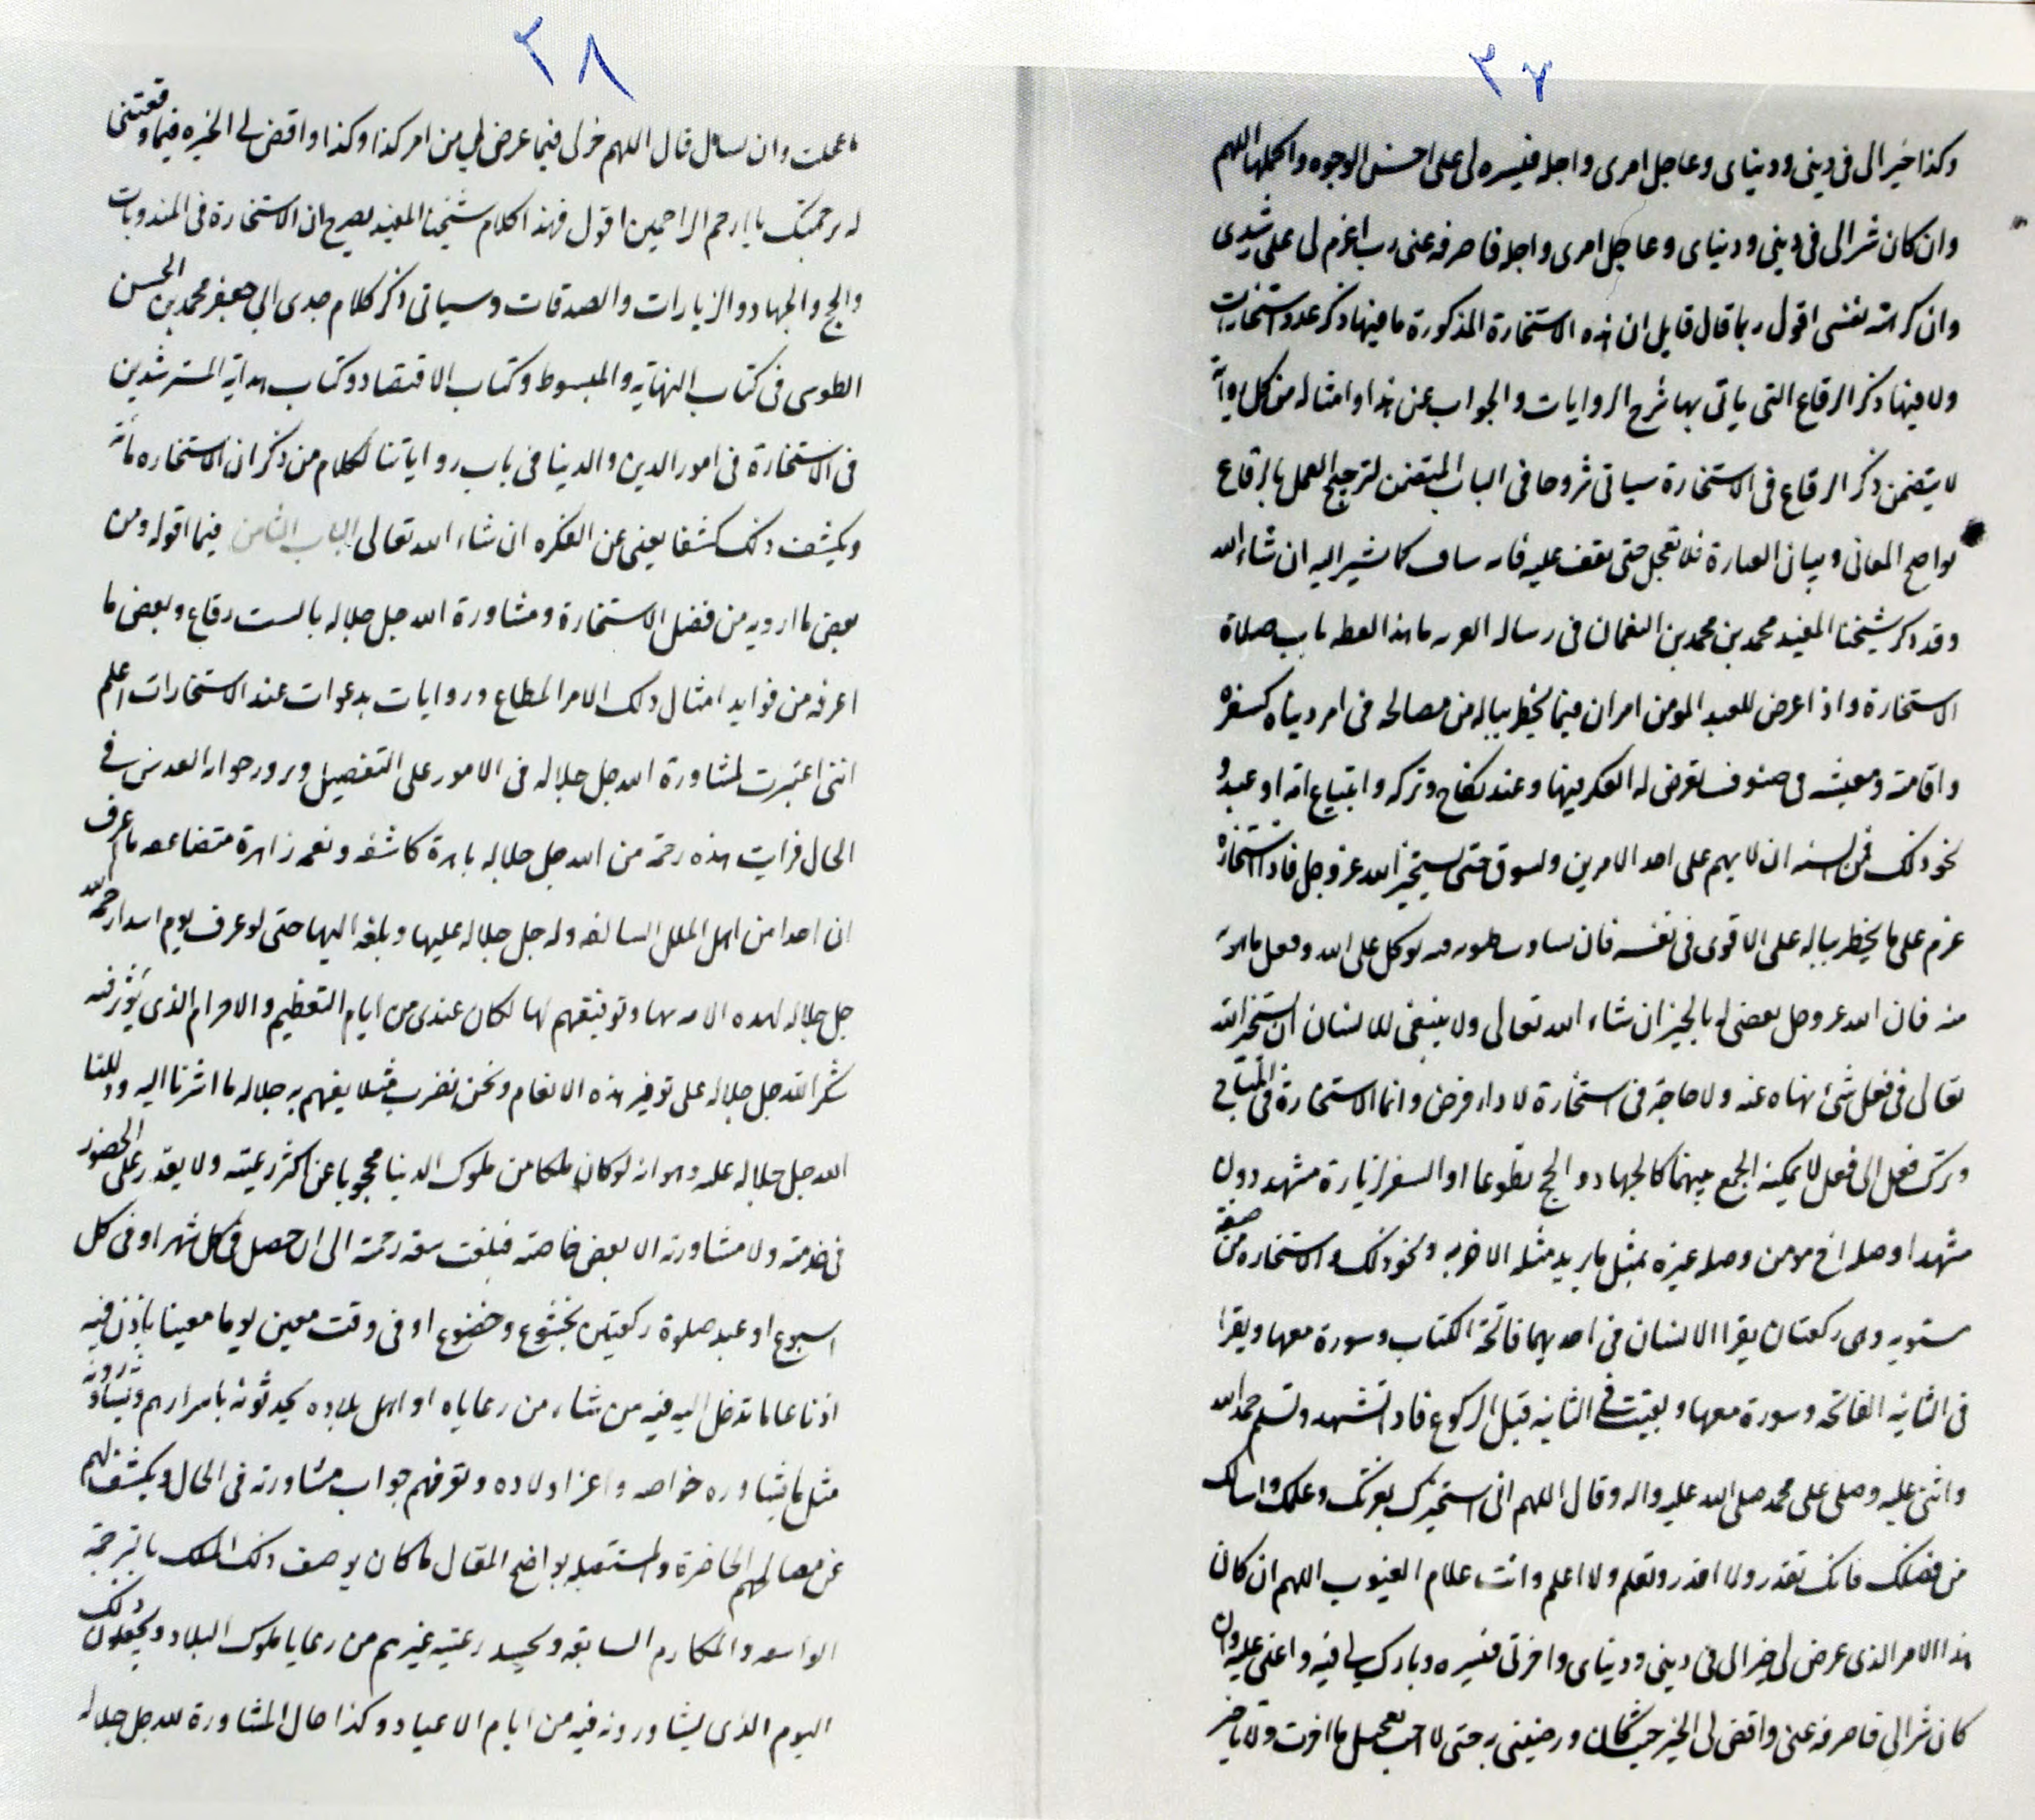 ٢٧
وكذا خيرا لى فى دينى ودنياى وعاجل امرى واجله فيسره لى على احسن الوجوه واكملها اللهم
وان كان شرا لى فى دينى ودنياى وعاجل امرى واجله فاصرفه عنى رب اعزم لى على رشدى
وان كرهته نفسى اقول ربما قال قايل ان هذه الاستخارة المذكورة ما فيها ذكر عدد استخارات
ولا فيها ذكر الرقاع التى ياتى بها شرح الروايات والجواب عن هذا وامثاله من كل رواية
لا يتضمن ذكر الرقاع فى الاستخارة سياتى مشروحا فى الباب المتضمن لترجيح العمل بالرقاع
بواضح المعانى وبيان العبارة فلا تعجل حتى تقف عليه فانه كما نشير اليه ان شاء الله
وقد ذكر شيخنا المفيد محمد بن محمد بن النعمان فى رساله ما هذا لفظه باب صلاة
الاستخارة واذا عرض للعبد المومن امران فيما يخطر بباله من مصالحه فى امر دنياه كسفره
واقامته ومعيشته فى صنوف يعرض له الفكر فيها وعند نكاح وتركه وابتياع امة او عبد و
نحو ذلك فمن السنه ان لا يهجم على احد الامرين وليتوق حتى يستخير الله عز وجل فاذا استخاره
عزم على ما يخطر بباله على الاقوى فى نفسه فان ساوت ظنونه فيه توكل على الله وفعل ما
منه فان الله عز وجل يقضى له بالخير ان شاء الله تعالى ولا ينبغى للانسان ان يستخير الله
تعالى فى فعل شئ نهاه عنه ولا حاجة فى استخارة لاداء فرض وانما الاستخارة فى المباح
وترك فعل الى فعل لا يمكنه الجمع بينهما كالجهاد والحج تطوعا او السفر لزيارة مشهد دون
مشهد او صلة اخ مومن وصله غيره بمثل ما يريد مثله الاخر به ونحو ذلك والاستخاره صفة
وهى ركعتان يقرا الانسان فى احديهما فاتحة الكتاب وسورة معها ويقرا
فى الثانيه الفاتحه وسورة معها ويقنت فى الثانيه قبل الركوع فاذا تشهد وتسلم حمد الله
واثنى عليه وصلى على محمد صلى الله عليه واله وقال اللهم انى استخيرك بعزتك وعلمك واسالك
من فضلك فانك تقدر ولا اقدر وتعلم ولا اعلم وانت علام الغيوب اللهم ان كان
هذا الامر الذى عرض لى خيرا لى فى دينى ودنياى واخرتى فيسره وبارك لى فيه واعنى عليه وان
كان شرا لى فاصرفه عنى واقض لى الخير حيث كان ورضينى به حتى لا احب تعجيل ما اخرت ولا تاخير
٢٨
ما عجلت وان سال قال اللهم خر لى فيما عرض لى من امر كذا وكذا واقض لى الخيره فيما وفقتنى
له برحمتك يا ارحم الراحمين اقول فهذا كلام شيخنا المفيد يصرح ان الاستخارة فى المندوبات
والحج والجهاد والزيارات والصدقات وسياتى ذكر كلام جدى ابى جعفر محمد بن الحسن
الطوسى فى كتاب النهايه والمبسوط وكتاب الاقتصاد وكتاب هداية المسترشدين
فى الاستخارة فى امور الدين والدنيا فى باب رواياتنا لكلام من ذكر ان الاستخاره مائة
ويكشف ذلك كشفا يغنى عن الفكره ان شاء الله تعالى الباب الثامن فيما اقوله ومن
بعض ما ارويه من فضل الاستخارة ومشاورة الله جل جلاله بالست رقاع وبعض ما
اعرفه من فوايد امتثال ذلك الامر المطاع وروايات بدعوات عند الاستخارات اعلم
اننى اعتبرت لمشاورة الله جل جلاله فى الامور على التفصيل وبرور جوابه المقدس فى
الحال فرايت هذه رحمة من الله جل جلاله باهرة كاشفه ونعمه زاهرة متضاعفه ما اعرف
ان احدا من اهل الملل السالفه دله جل جلاله عليها وبلغه اليها حتى لو عرف يوم ابتدا رحمة الله
جل جلاله لهذه الامه بها وتوفيقهم لها لكان عندى من ايام التعظيم والاحترام الذى يؤثر فيه
شكر الله جل جلاله على توفير هذه الانعام ونحن نضرب مثلا يفهم به جلاله ما اشرنا اليه ودللنا
الله جل جلاله عليه وهو انه لو كان ملكا من ملوك الدنيا محجوبا عن اكثر رعيته ولا يقدر على الحضور
فى خدمته ولا مشاورته الا بعض خاصته فبلغت سعة رحمته الى ان جعل فى كل شهر او فى كل
اسبوع او عند صلوة ركعتين بخشوع وخضوع او فى وقت معين يوما معينا ياذن فيه
اذنا عاما تدخل اليه فيه من شاء من رعاياه او اهل بلاده يحدثونه باسرارهم ويشاورونه
مثل ما يشاوره خواصه واعز اولاده وتعرفهم جواب مشاورته فى الحال ويكشف لهم
عن مصالحهم الحاضرة والمستقبله بواضح المقال ما كان يوصف ذلك الملك بالرحمة
الواسعه والمكارم السابقه ويحسد رعيته غيرهم من رعايا ملوك البلاد ويجعلون ذلك
اليوم الذى يشاورونه فيه من ايام الاعياد وكذا حال المشاورة لله جل جلاله